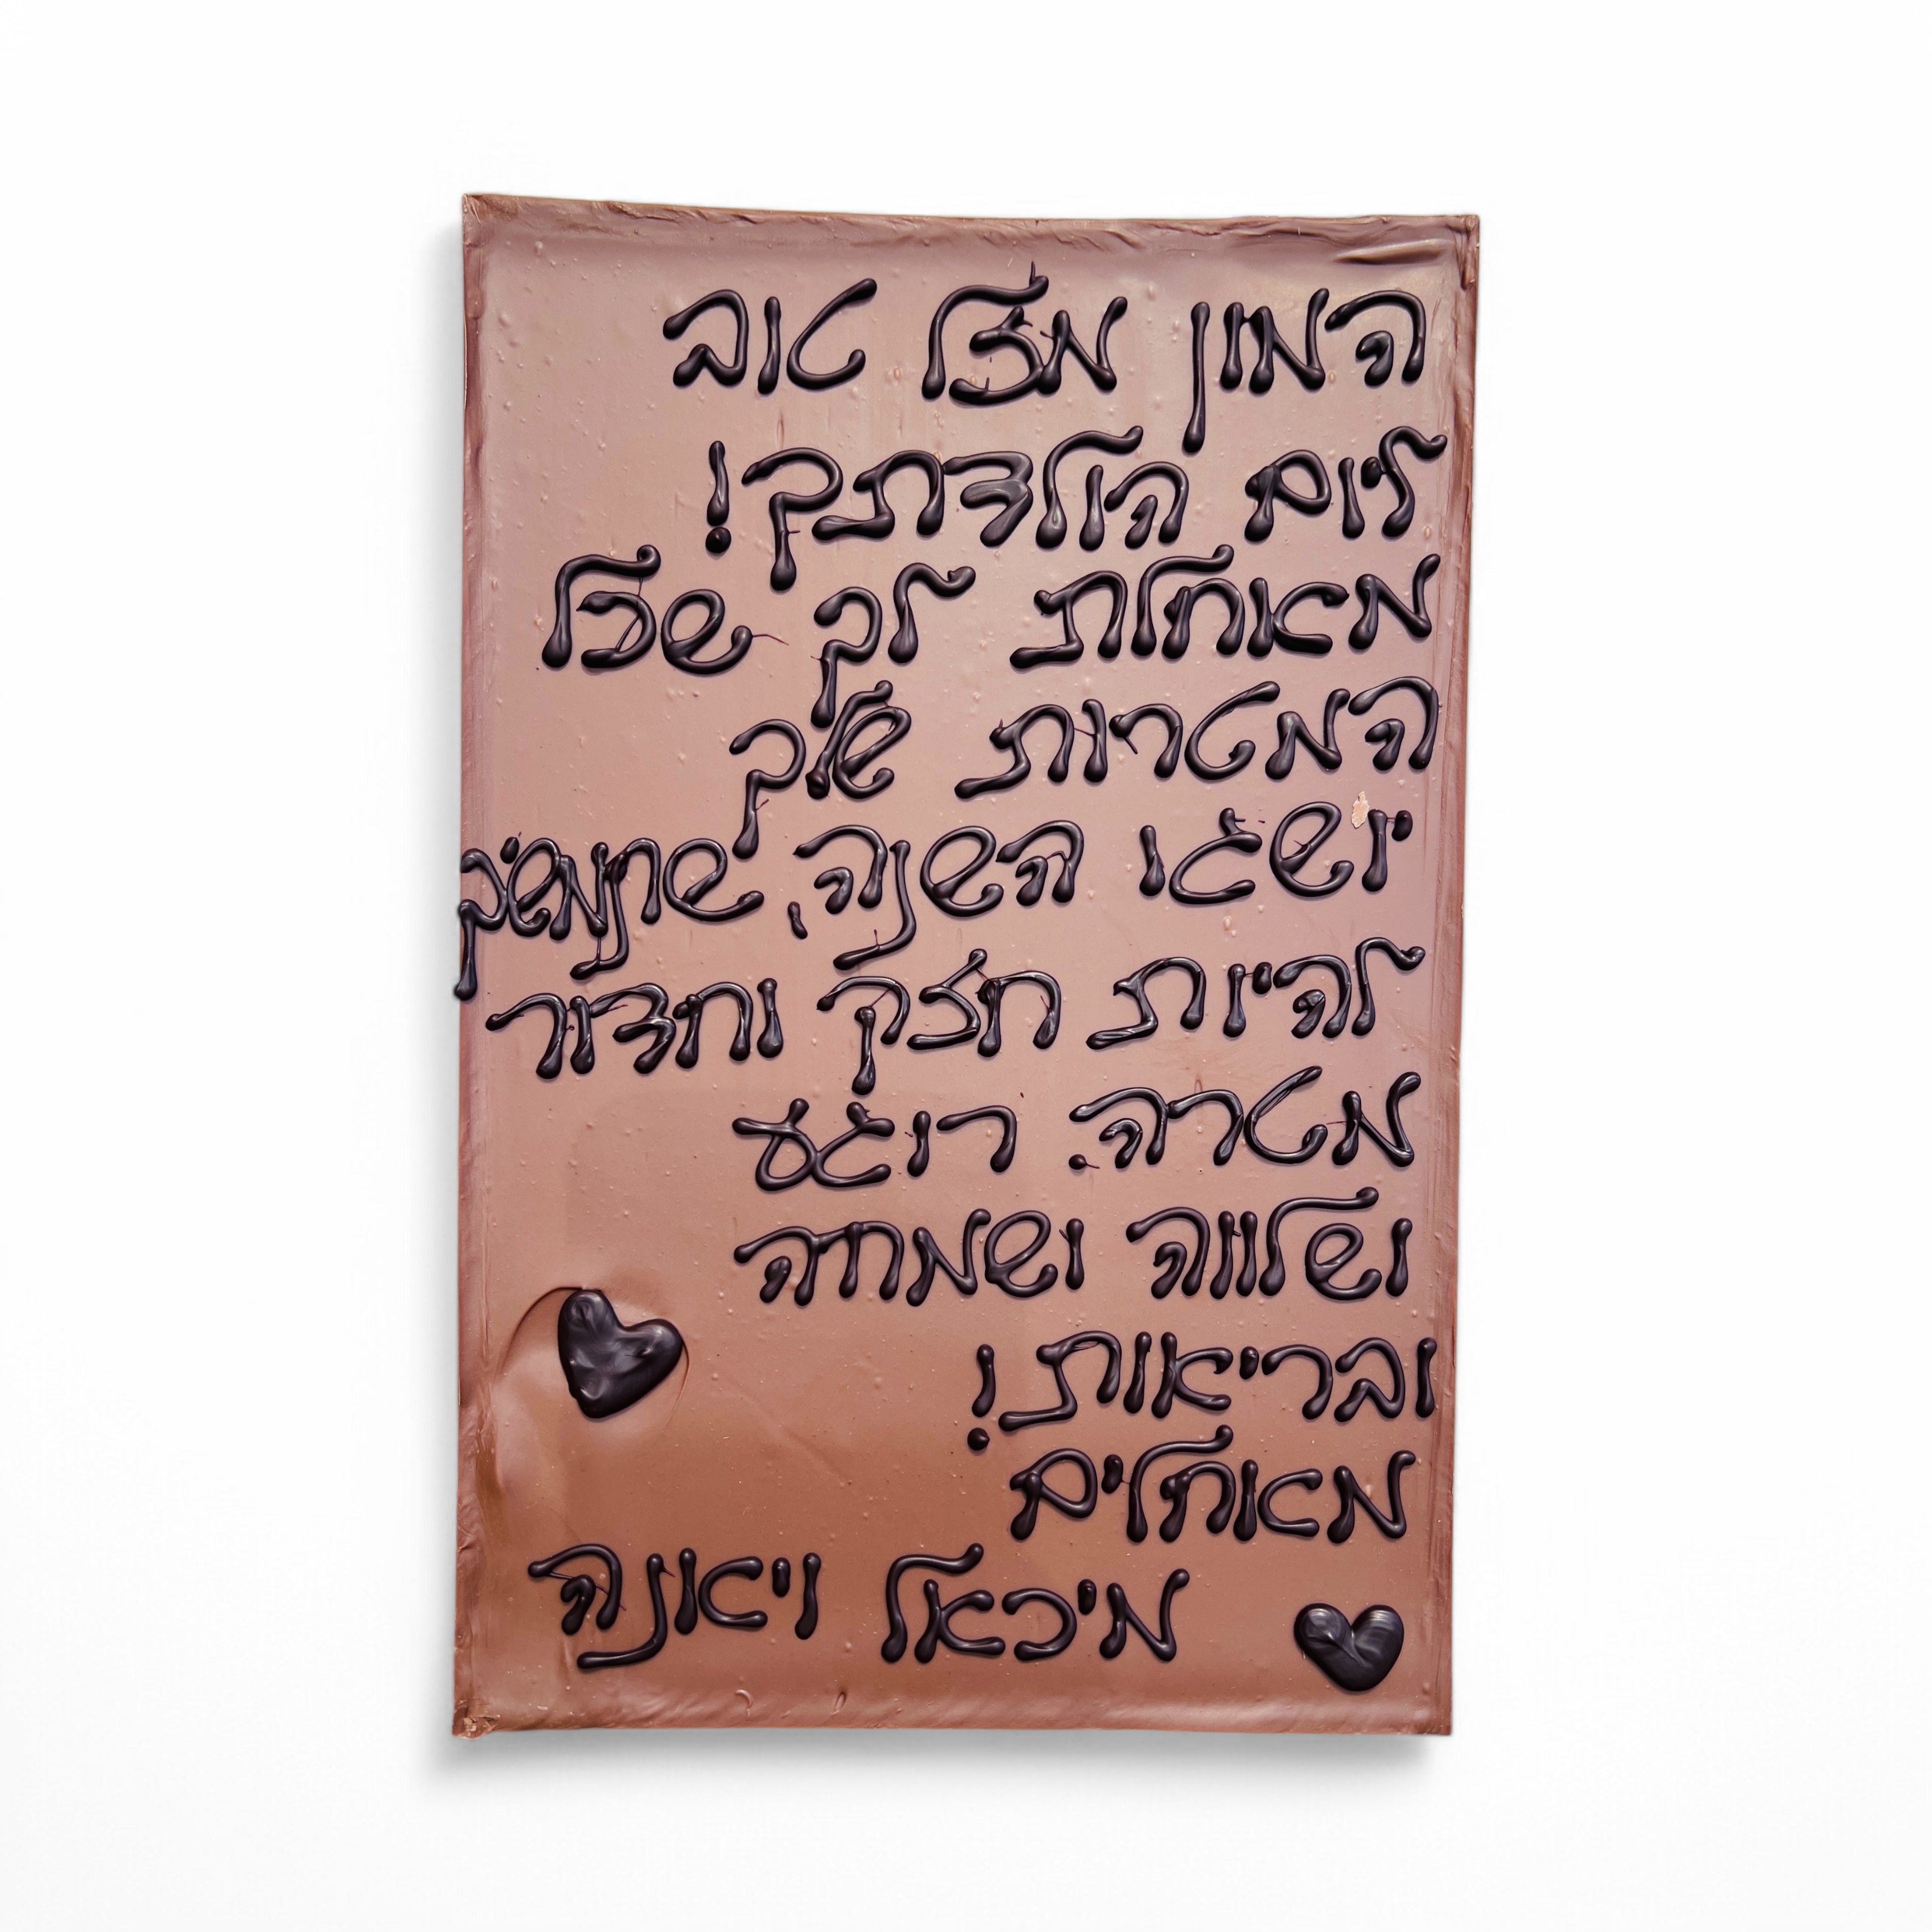 המון מצל טוב
ליום הולדתך!
מאחלת לך שכל
המטרות שלך
יושגו השנה, שתמשיך
להיות חזק וחדור
מטרה. רוגע
ושלווה ושמחה
ובריאות!
מאחלים
מיכאל ויאנה